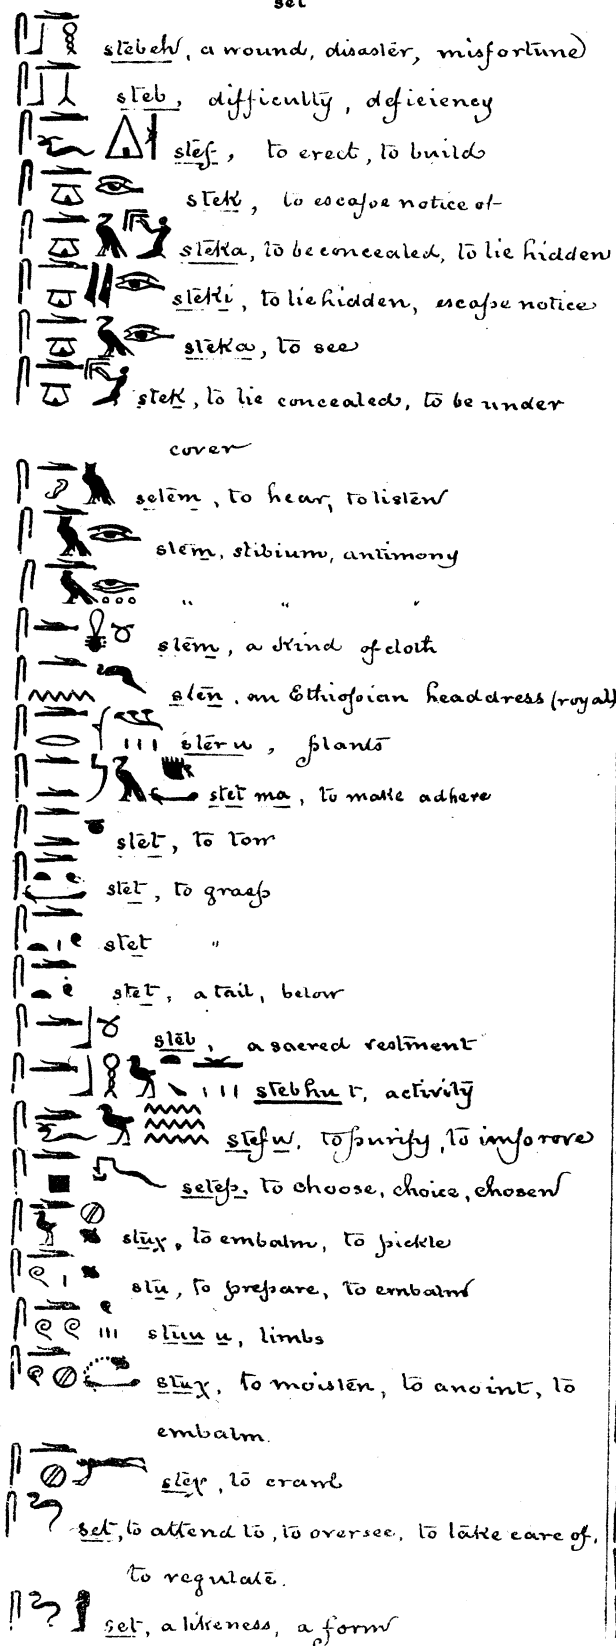 set
stebeh, a wound, disaster, misfortune)
steb, difficulty, deficiency
stef, to erect, to build
stek, to escape notice of
steka, to be concealed, to lie hidden
steki, to lie hidden, escape notice
steka, to see
stek, to lie concealed, to be under
cover
setem, to hear, to listen
stem, stibium, antimony
" " "
stem, a kind of cloth
sten, an Ethiopian headdress (royal)
steru, plants
stet ma, to make adhere
stet, to tow
stet, to grasp
stet "
stet, a tail, below
steb, a sacred vestment
stebhu t, activity
stefu, to purify, to improve
setep, to choose, choice, chosen
stuχ, to embalm, to pickle
stu, to prepare, to embalm
stuu u, limbs
stuχ, to moisten, to anoint, to
embalm.
steχ, to crawl
set, to attend to, to oversee, to take care of,
to regulate.
set, a likeness, a form